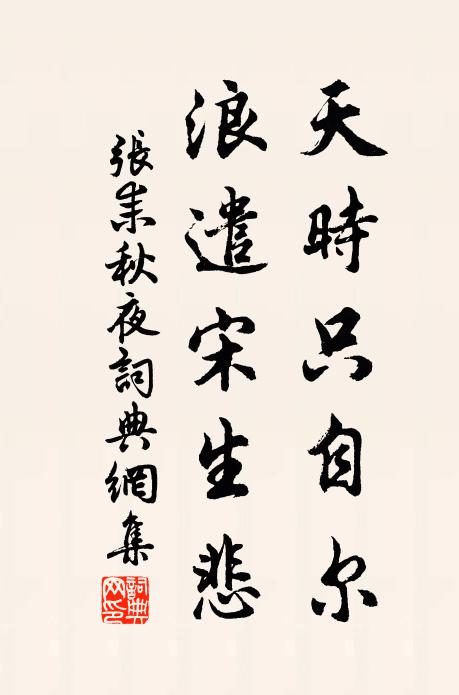 天時只自尔
浪遣宋生悲
張耒秋夜詞典網集
詞典網印